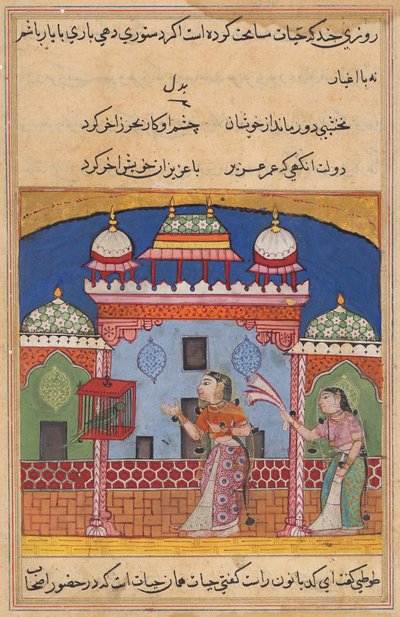 روزی چند که حیات مسامحت کرده است اکر دستوری دهی باری با یار باشم
نه با اغیار
بدل
نخشبی دور ماند از خوشان چشم او کار بحر زاخر کرد
دولت انکهی که عمر عزیز با عزیزان خویش اخر کرد
طوطی کفت ای کدبانو راست کفتی حیات همان حیات است که در حضور اصحاب